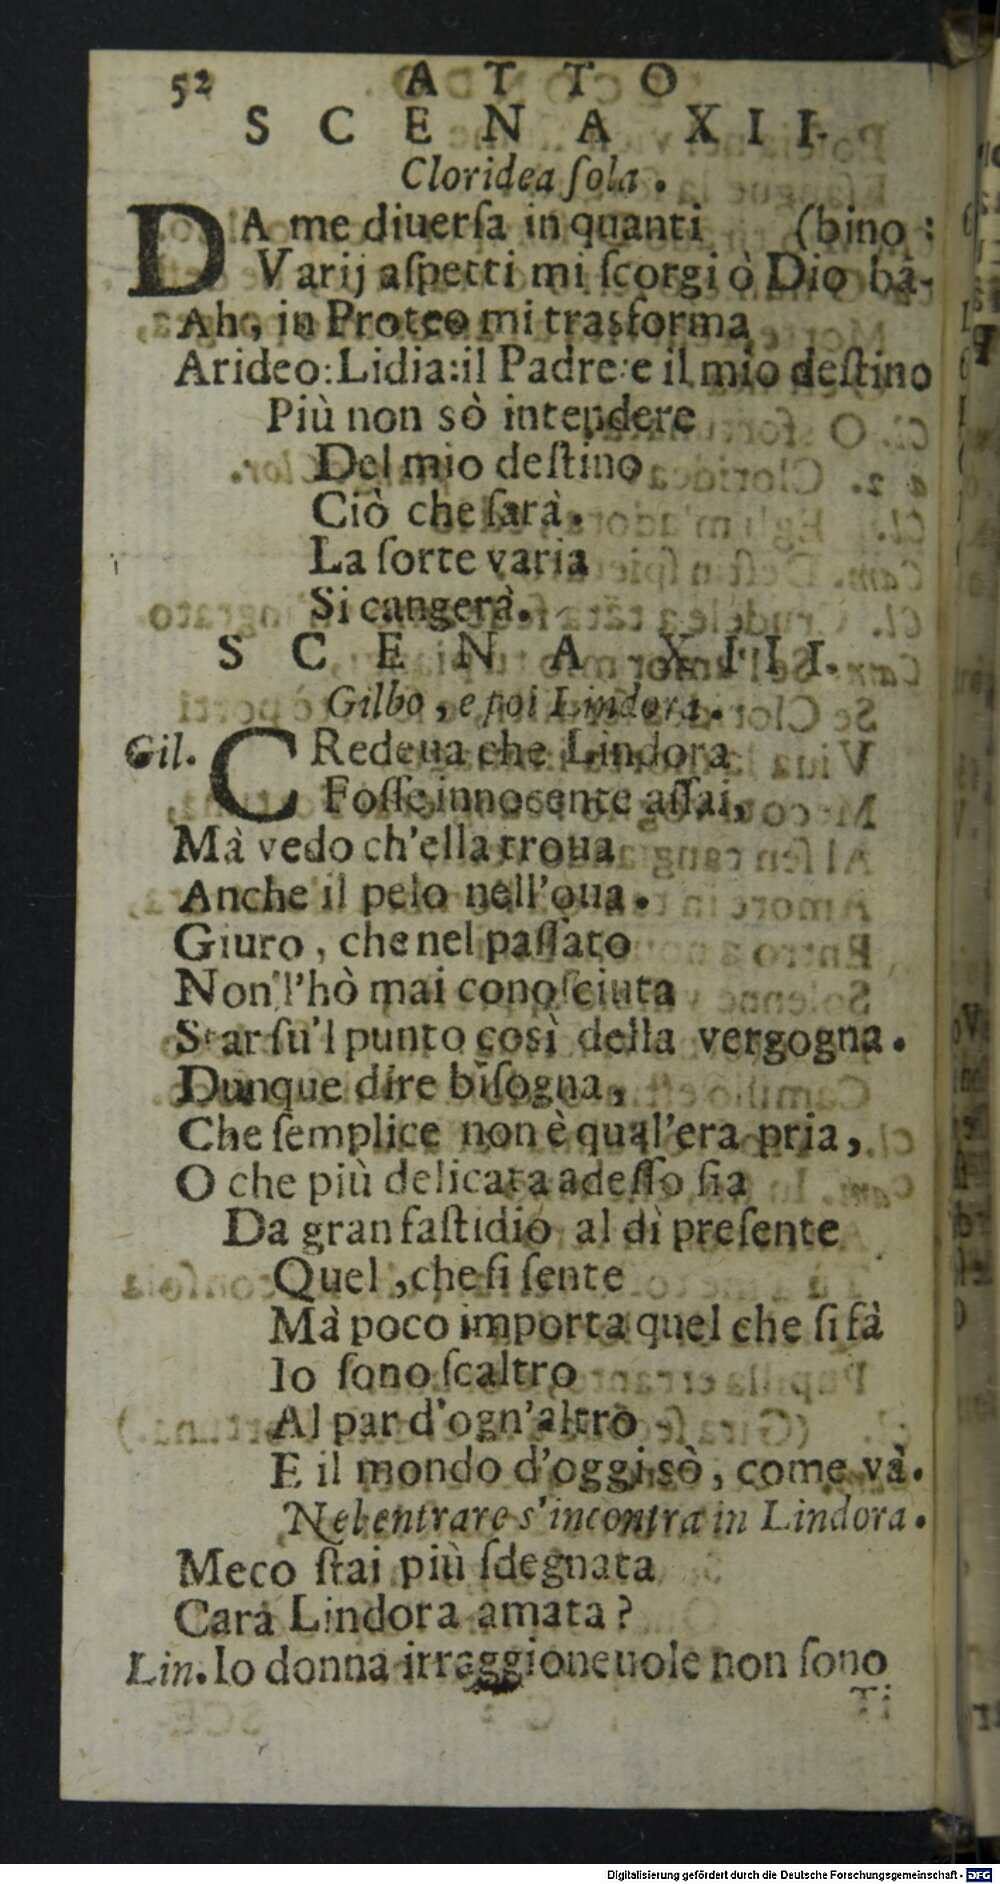 52 ATTO
SCENA XII.
Cloridea ſola.
DA me diuerſa in quanti (bino:
Varij aſpetti mi ſcorgi ò Dio ba-
Ah, in Proteo mi trasforma
Arideo: Lidia: il Padre: e il mio deſtino
Più non sò intendere
Del mio deſtino
Ciò che ſarà.
La ſorte varia
Si cangerà.
SCENA XIII.
Gilbo, e poi Lindora.
Gil. CRedeua che Lindora
Foſſe innocente aſſai,
Mà vedo ch'ella troua
Anche il pelo nell'oua.
Giuro, che nel paſſato
Non l'hò mai conoſciuta
Star ſu'l punto così della vergogna.
Dunque dire biſogna,
Che ſemplice non è qual'era pria,
O che più delicata adeſſo ſia
Da gran faſtidio al dì preſente
Quel, che ſi ſente
Mà poco importa quel che ſi fà
Io ſono ſcaltro
Al par d'ogn'altro
E il mondo d'oggi sò, come và.
Nel entrare s'incontra in Lindora.
Meco ſtai più ſdegnata
Cara Lindora amata?
Lin. Io donna irraggioneuole non ſono
Ti
Digitalisierung gefördert durch die Deutsche Forschungsgemeinschaft - DFG